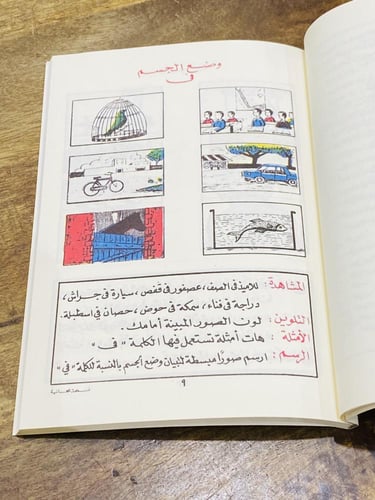 وضع الجسم
في
المشاهدة : تلاميذ في الصف، عصفور في قفص، سيارة في جراش،
دراجة في فناء، سمكة في حوض، حصان في اسطبلة.
التلوين : لون الصور المبينة أمامك.
الأمثلة : هات أمثلة تستعمل فيها الكلمة " في "
الرسم : ارسم صورًا مبسطة لتبيان وضع الجسم بالنسبة للكلمة "في"
٩